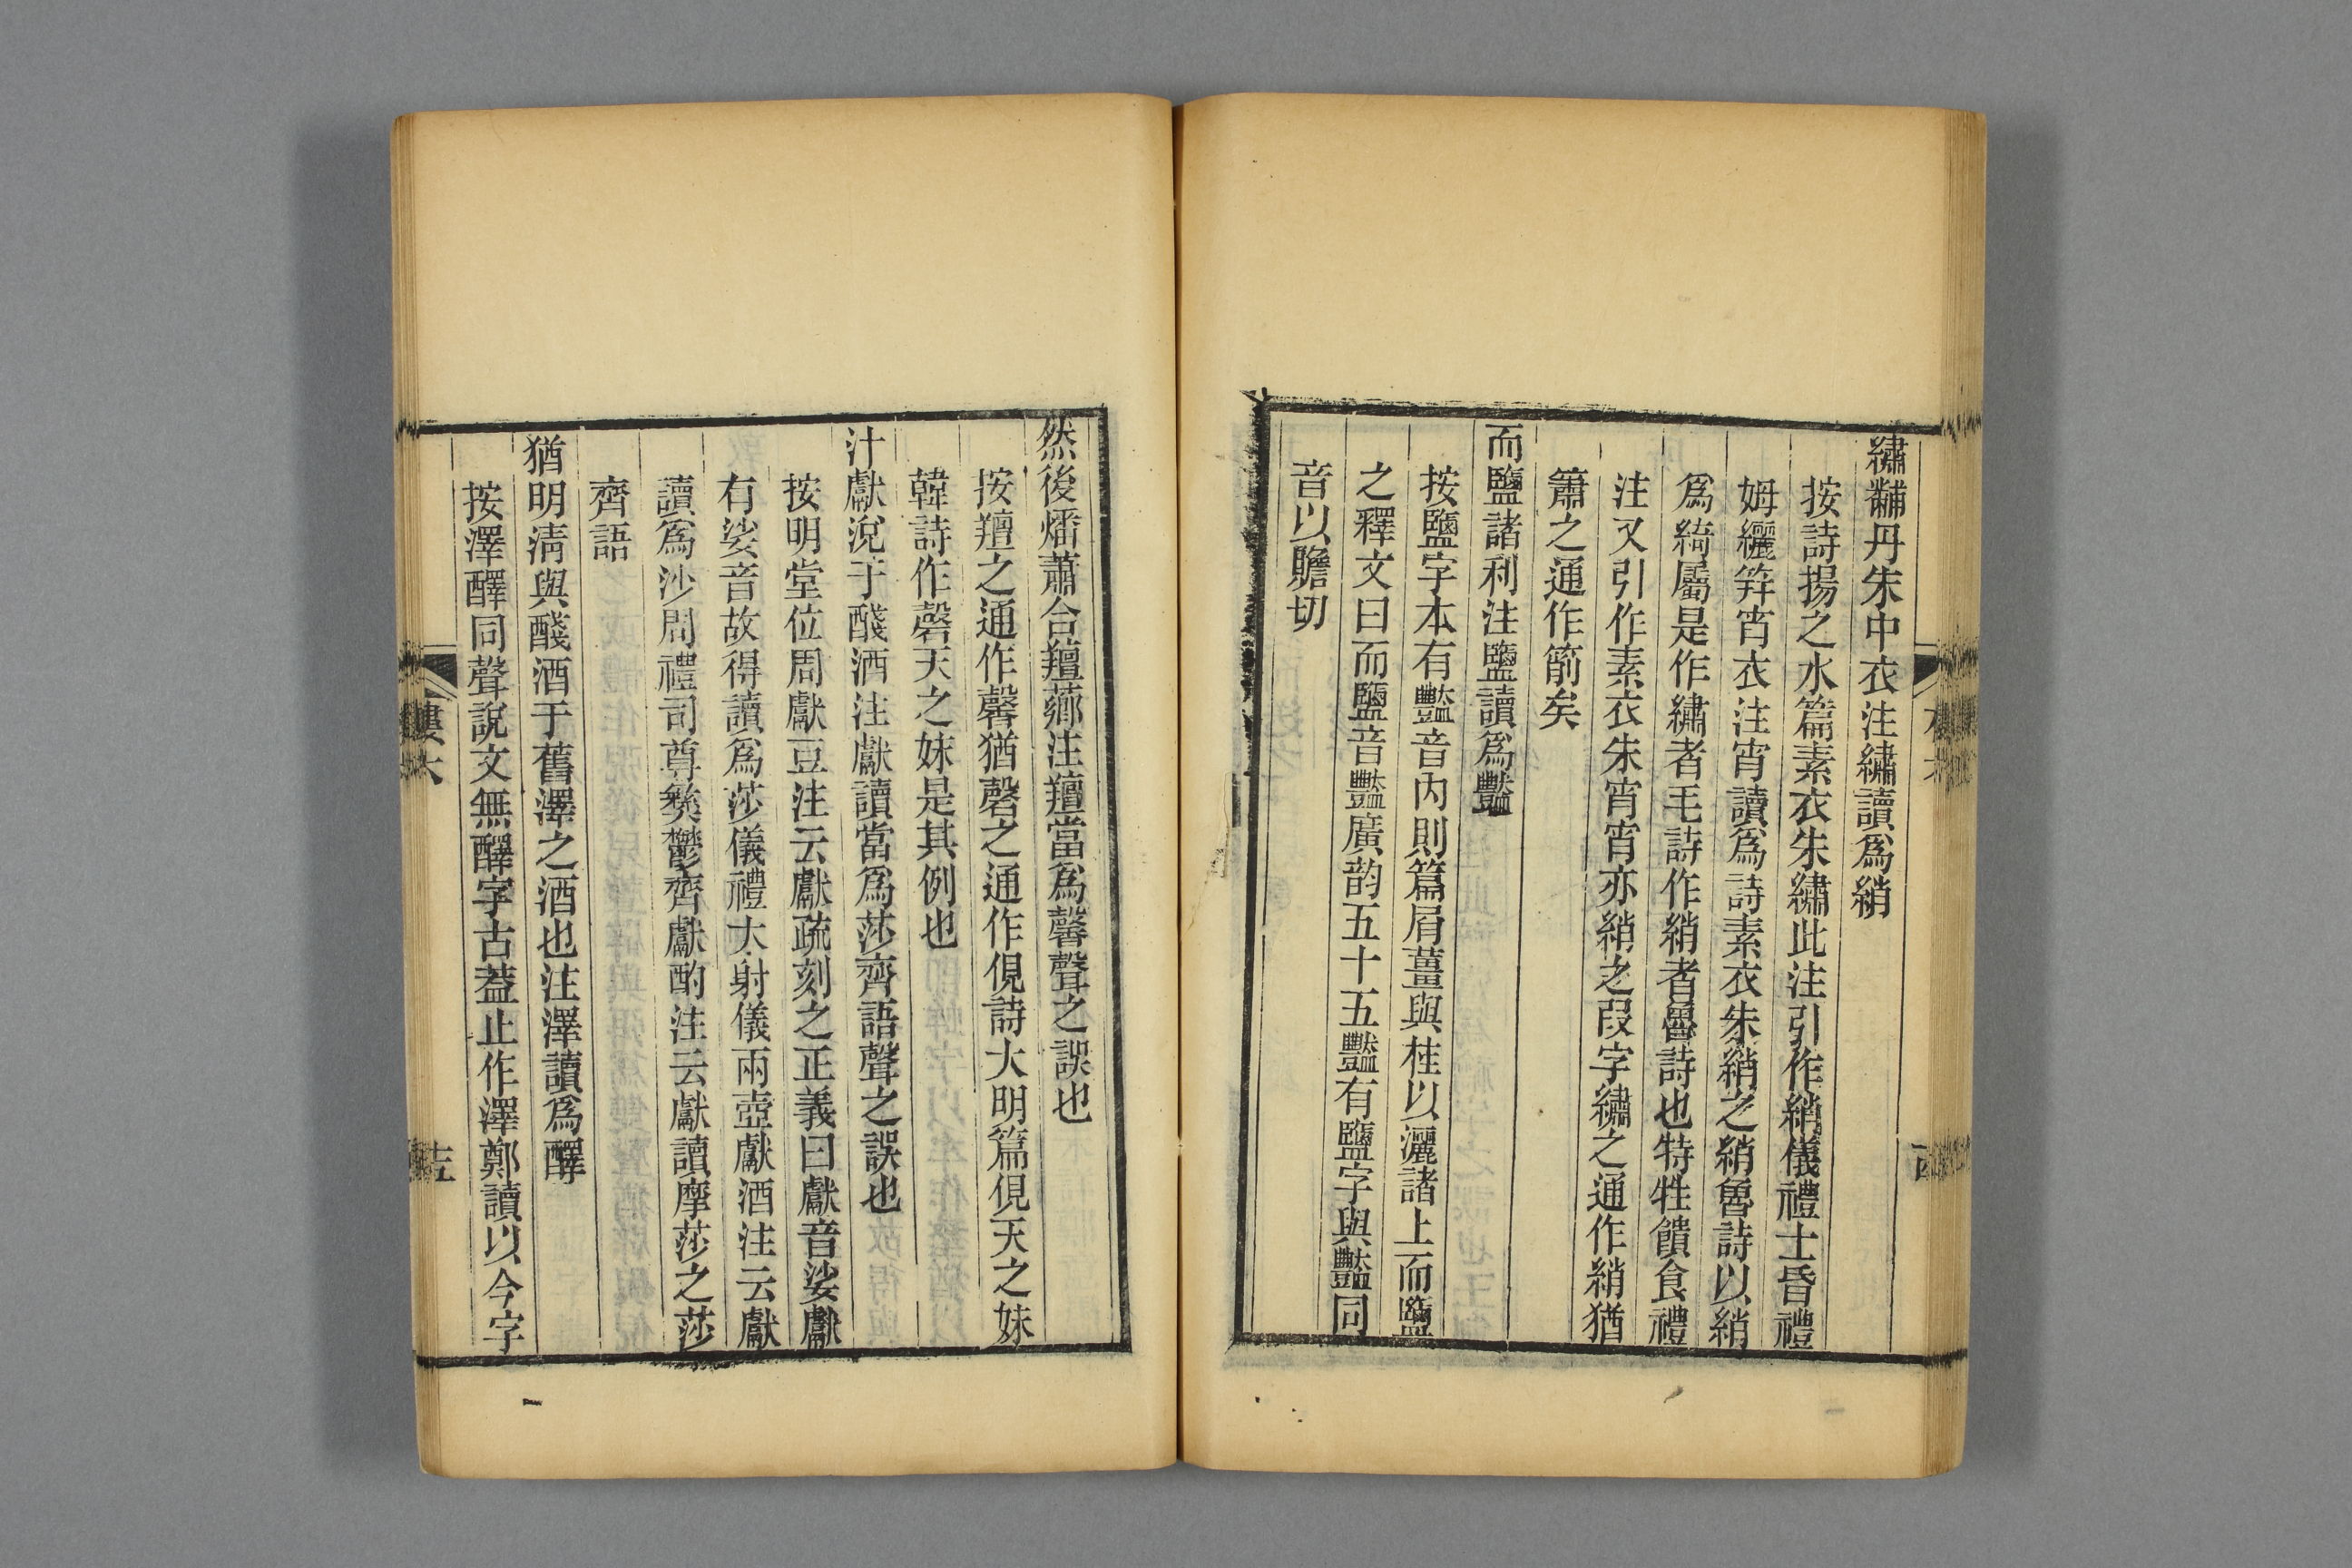 繡黼丹朱中衣注繡讀爲綃
按詩揚之水篇素衣朱繡此注引作綃儀禮士昏禮
姆纚笄宵衣注宵讀爲詩素衣朱綃之綃魯詩以綃
爲綺屬是作繡者毛詩作綃者魯詩也特牲饋食禮
注又引作素衣朱宵宵亦綃之叚字繡之通作綃猶
簫之通作箾矣
而鹽諸利注鹽讀爲豔
按鹽字本有豔音內則篇屑薑與桂以灑諸上而鹽
之釋文曰而鹽音豔廣韵五十五豔有鹽字與豔同
音以贍切
然後燔蕭合羶薌注羶當爲馨聲之誤也
按羶之通作馨猶磬之通作俔詩大明篇俔天之妹
韓詩作磬天之妹是其例也
汁獻涗于醆酒注獻讀當爲莎齊語聲之誤也
按明堂位周獻豆注云獻疏刻之正義曰獻音娑獻
有娑音故得讀爲莎儀禮大射儀兩壺獻酒注云獻
讀爲沙周禮司尊彝鬱齊獻酌注云獻讀摩莎之莎
齊語
猶明清與醆酒于舊澤之酒也注澤讀爲醳
按澤醳同聲說文無醳字古葢止作澤鄭讀以今字
樓六